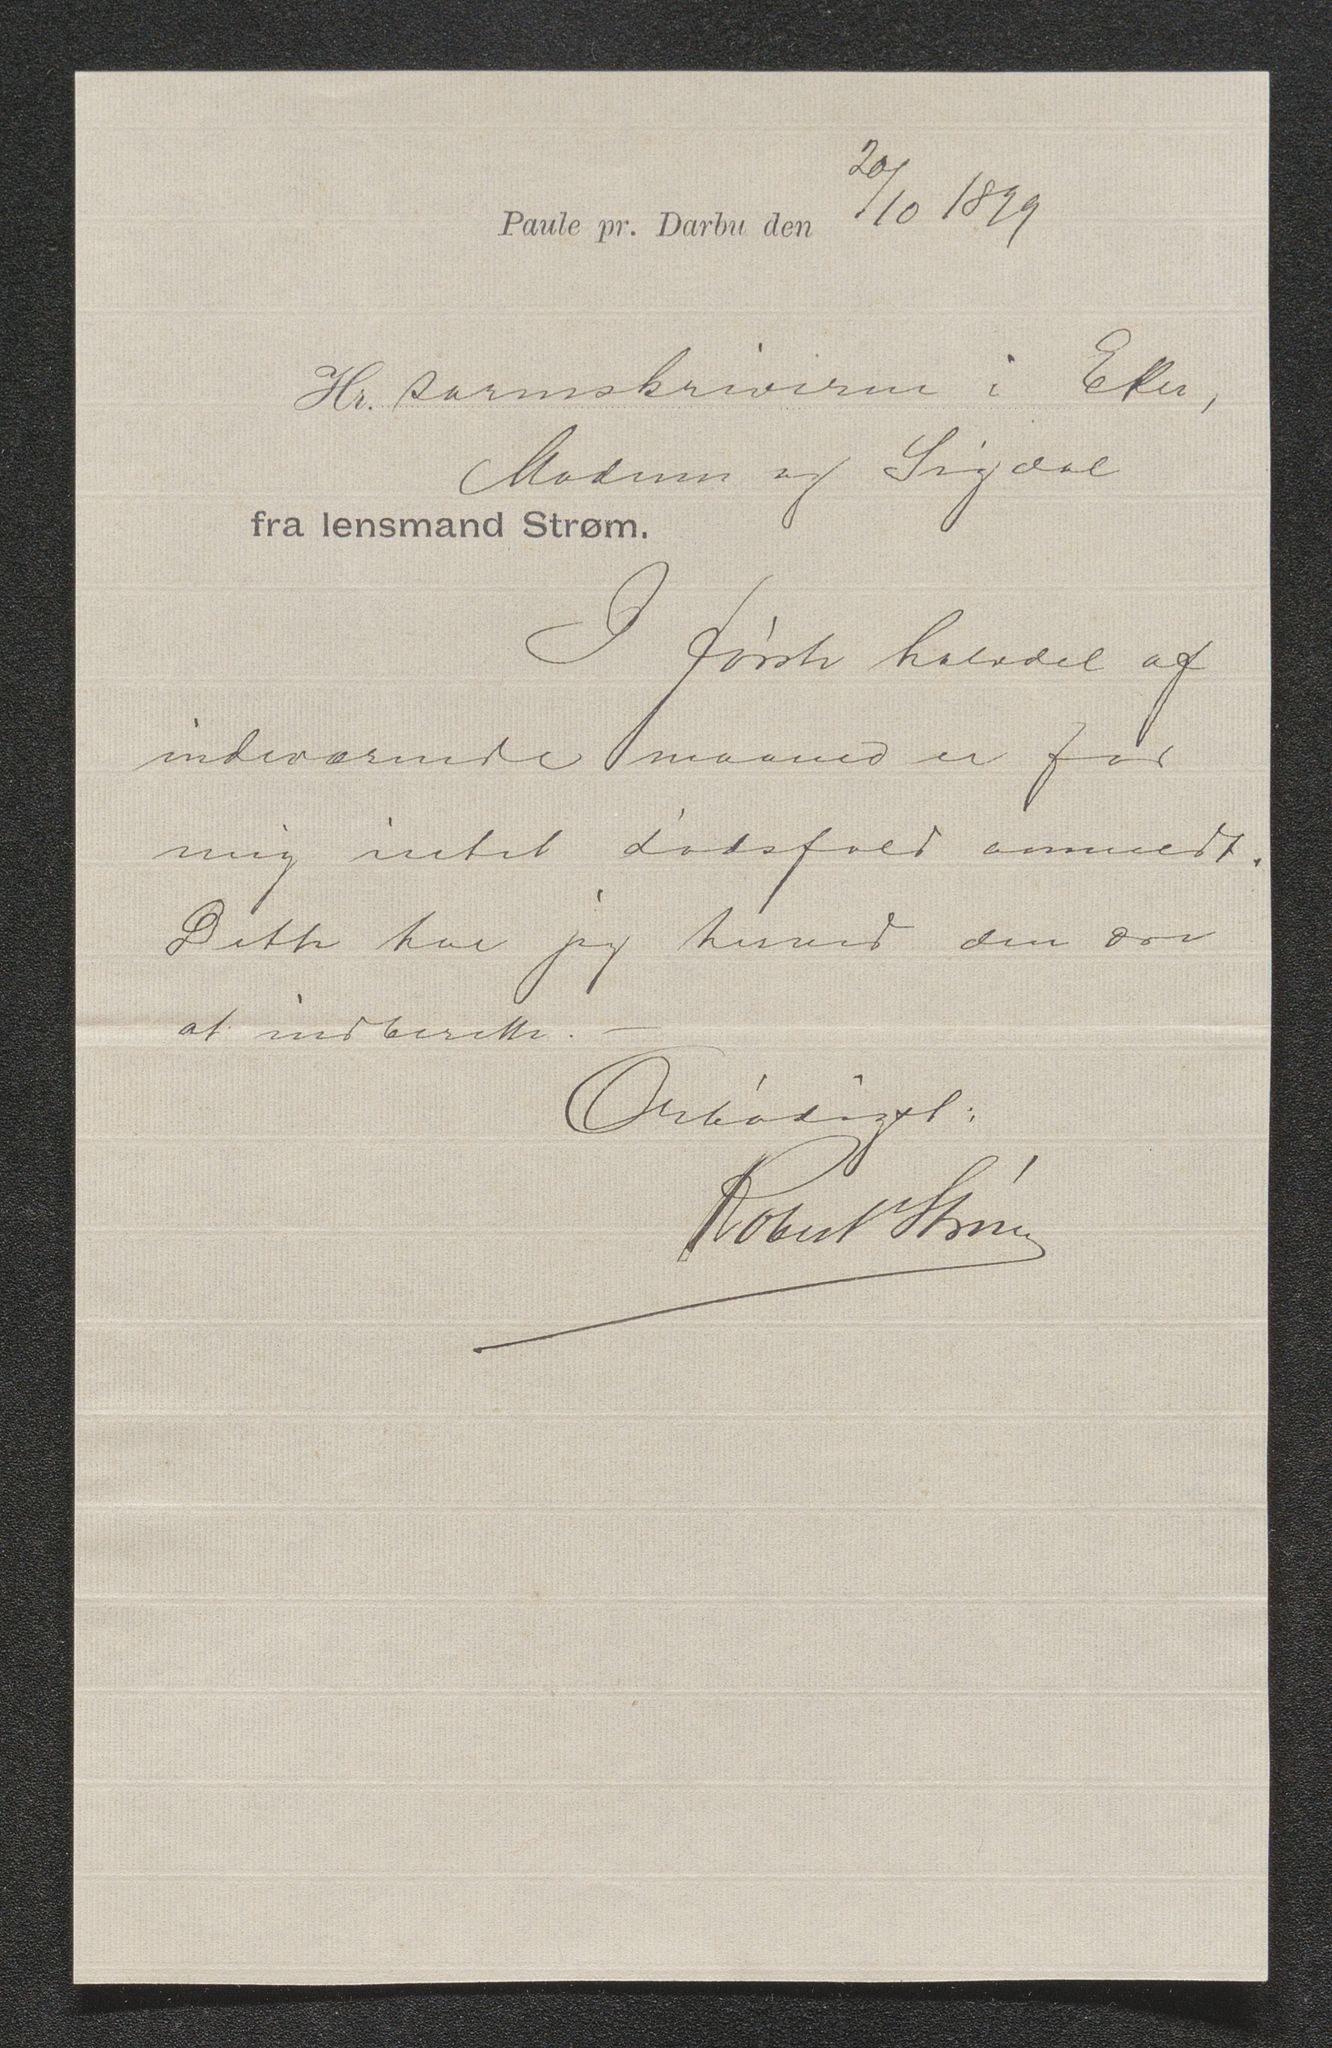 Paule pr. Darbu den 20/10 1899
Hr. sorenskriveren i Eker,
Modum og Sigdal
fra lensmand Strøm.
I første halvdel af
indeværende maaned er for
mig intet dødsfald anmeldt.
Dette har jeg herved den ære
at indberette. —
Ærbødigst:
Robert Strøm